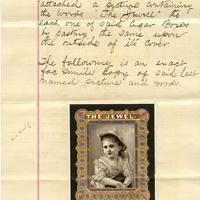 attached a picture containing
the words "The Jewel" to
each one of said Cigar Boxes
by pasting the same upon
the outside of its cover
The following is an exact
fac simile copy of said last
named picture and words.
THE JEWEL